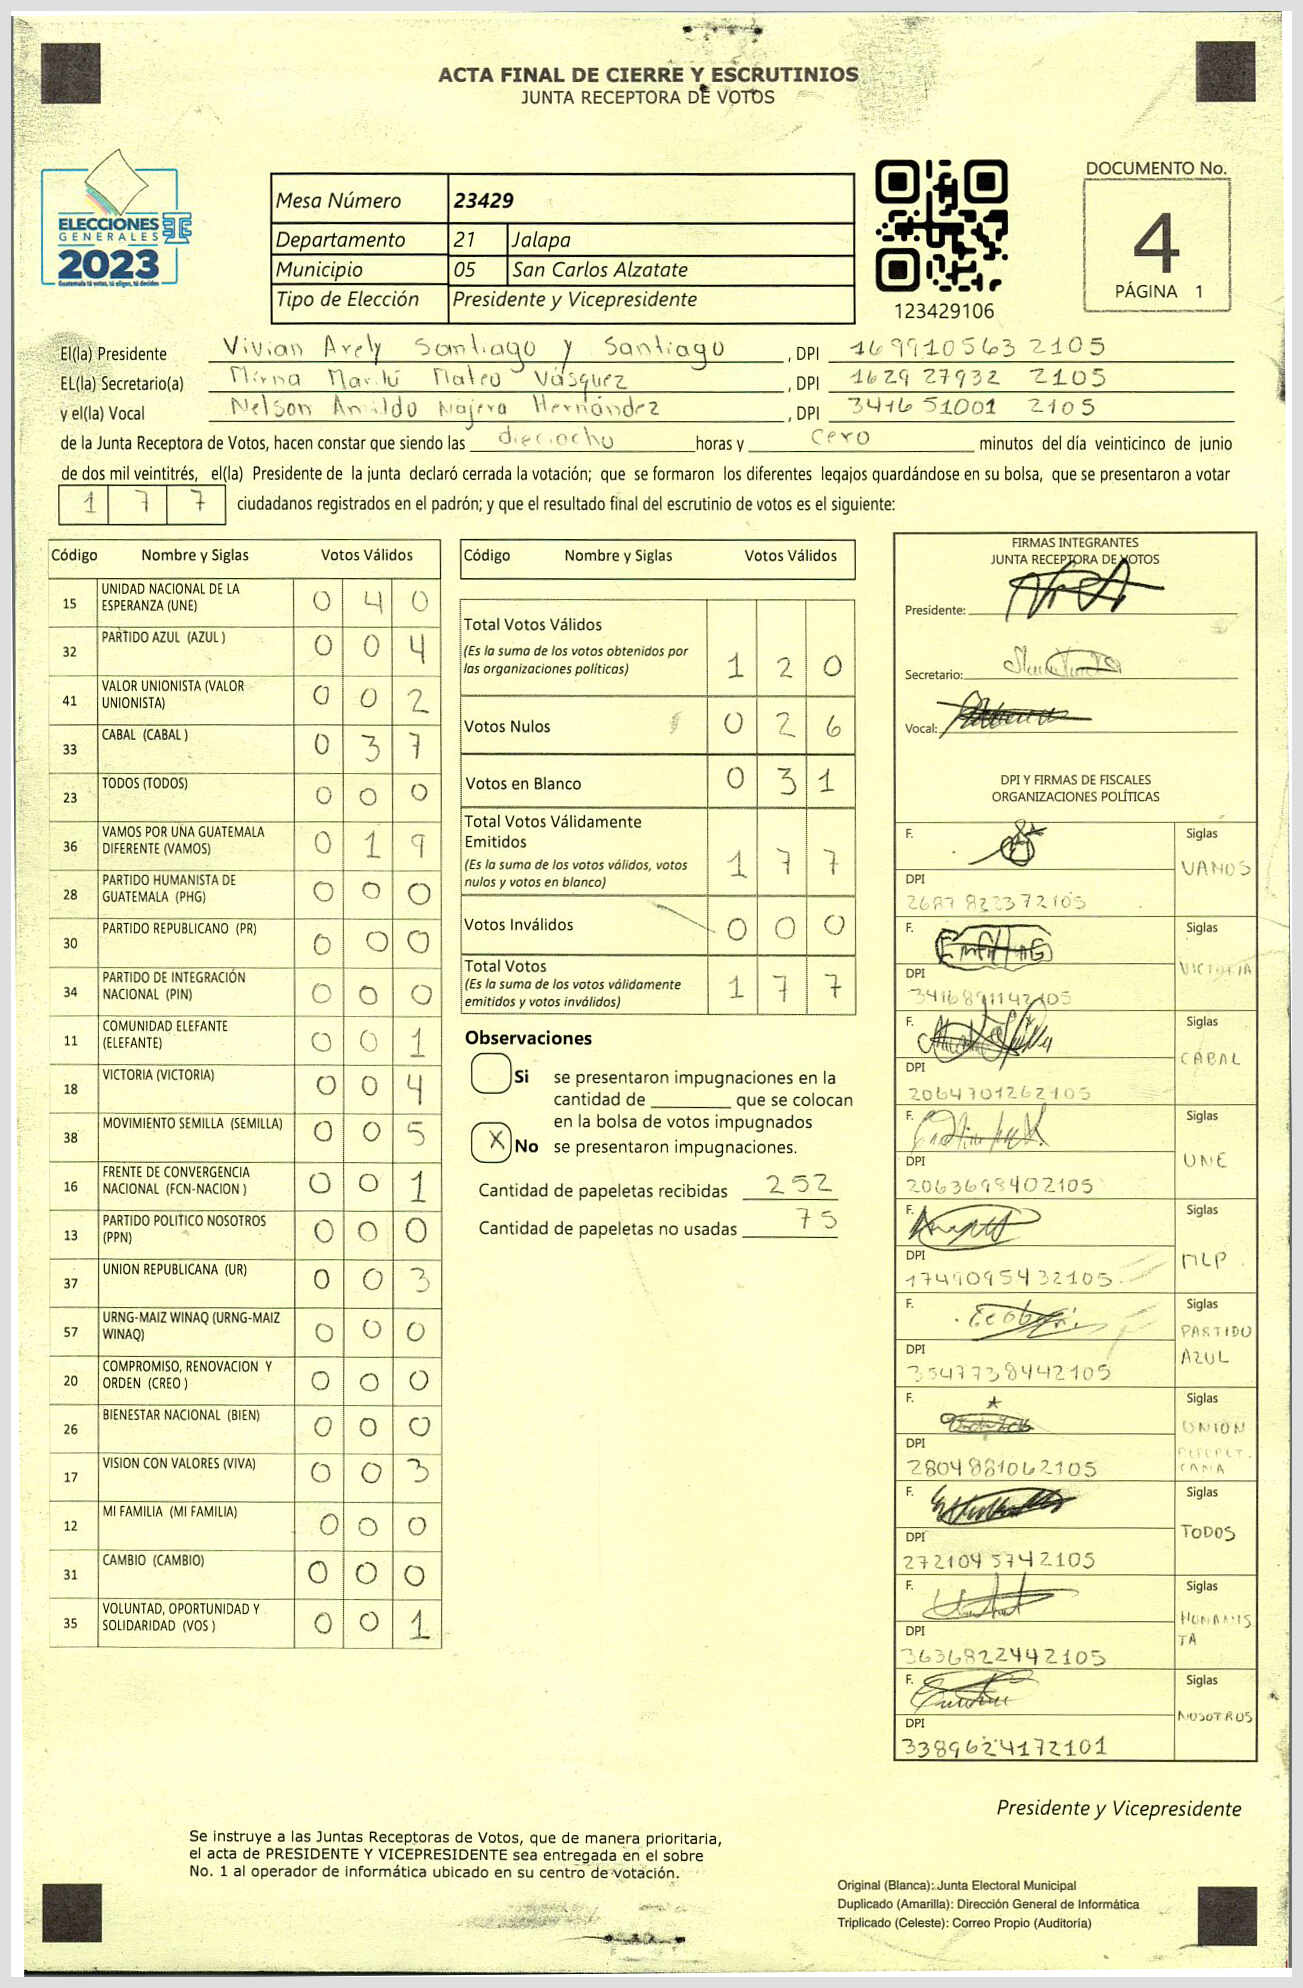 ACTA FINAL DE CIERRE Y ESCRUTINIOS
JUNTA RECEPTORA DE VOTOS
ELECCIONES
GENERALES
2023
Guatemala tú votas, tú eliges, tú decides
Mesa Número 23429
Departamento 21 Jalapa
Municipio 05 San Carlos Alzatate
Tipo de Elección Presidente y Vicepresidente
123429106
DOCUMENTO No.
4
PÁGINA 1
El(la) Presidente Vivian Arely Santiago y Santiago, DPI 169910563 2105
EL(la) Secretario(a) Mirna Marilú Mateo Vásquez, DPI 1629 27932 2105
y el(la) Vocal Nelson Arnildo Najera Hernández, DPI 341651001 2105
de la Junta Receptora de Votos, hacen constar que siendo las dieciocho horas y cero minutos del día veinticinco de junio
de dos mil veintitrés, el(la) Presidente de la junta declaró cerrada la votación; que se formaron los diferentes legajos guardándose en su bolsa, que se presentaron a votar
1 7 7 ciudadanos registrados en el padrón; y que el resultado final del escrutinio de votos es el siguiente:
Código Nombre y Siglas Votos Válidos
15 UNIDAD NACIONAL DE LA ESPERANZA (UNE) 0 4 0
32 PARTIDO AZUL (AZUL ) 0 0 4
41 VALOR UNIONISTA (VALOR UNIONISTA) 0 0 2
33 CABAL (CABAL ) 0 3 7
23 TODOS (TODOS) 0 0 0
36 VAMOS POR UNA GUATEMALA DIFERENTE (VAMOS) 0 1 9
28 PARTIDO HUMANISTA DE GUATEMALA (PHG) 0 0 0
30 PARTIDO REPUBLICANO (PR) 0 0 0
34 PARTIDO DE INTEGRACIÓN NACIONAL (PIN) 0 0 0
11 COMUNIDAD ELEFANTE (ELEFANTE) 0 0 1
18 VICTORIA (VICTORIA) 0 0 4
38 MOVIMIENTO SEMILLA (SEMILLA) 0 0 5
16 FRENTE DE CONVERGENCIA NACIONAL (FCN-NACION ) 0 0 1
13 PARTIDO POLITICO NOSOTROS (PPN) 0 0 0
37 UNION REPUBLICANA (UR) 0 0 3
57 URNG-MAIZ WINAQ (URNG-MAIZ WINAQ) 0 0 0
20 COMPROMISO, RENOVACION Y ORDEN (CREO ) 0 0 0
26 BIENESTAR NACIONAL (BIEN) 0 0 0
17 VISION CON VALORES (VIVA) 0 0 3
12 MI FAMILIA (MI FAMILIA) 0 0 0
31 CAMBIO (CAMBIO) 0 0 0
35 VOLUNTAD, OPORTUNIDAD Y SOLIDARIDAD (VOS ) 0 0 1
Código Nombre y Siglas Votos Válidos
Total Votos Válidos
(Es la suma de los votos obtenidos por las organizaciones políticas) 1 2 0
Votos Nulos 0 2 6
Votos en Blanco 0 3 1
Total Votos Válidamente Emitidos
(Es la suma de los votos válidos, votos nulos y votos en blanco) 1 7 7
Votos Inválidos 0 0 0
Total Votos
(Es la suma de los votos válidamente emitidos y votos inválidos) 1 7 7
Observaciones
Si se presentaron impugnaciones en la
cantidad de ________ que se colocan
en la bolsa de votos impugnados
X No se presentaron impugnaciones.
Cantidad de papeletas recibidas 252
Cantidad de papeletas no usadas 75
FIRMAS INTEGRANTES
JUNTA RECEPTORA DE VOTOS
Presidente:
Secretario:
Vocal:
DPI Y FIRMAS DE FISCALES
ORGANIZACIONES POLÍTICAS
F. Siglas
VAMOS
DPI
2687 822372105
F. Siglas
VICTORIA
DPI
3416891142105
F. Siglas
CABAL
DPI
2064701262105
F. Siglas
UNE
DPI
2063698402105
F. Siglas
MLP
DPI
1749095432105
F. Siglas
PARTIDO
AZUL
DPI
3547738442105
F. Siglas
UNION
DPI
2804881062105
F. Siglas
TODOS
DPI
272104 5742105
F. Siglas
HUMANIS
TA
DPI
3636822442105
F. Siglas
NOSOTROS
DPI
3389624172101
Presidente y Vicepresidente
Se instruye a las Juntas Receptoras de Votos, que de manera prioritaria,
el acta de PRESIDENTE Y VICEPRESIDENTE sea entregada en el sobre
No. 1 al operador de informática ubicado en su centro de votación.
Original (Blanca): Junta Electoral Municipal
Duplicado (Amarilla): Dirección General de Informática
Triplicado (Celeste): Correo Propio (Auditoría)